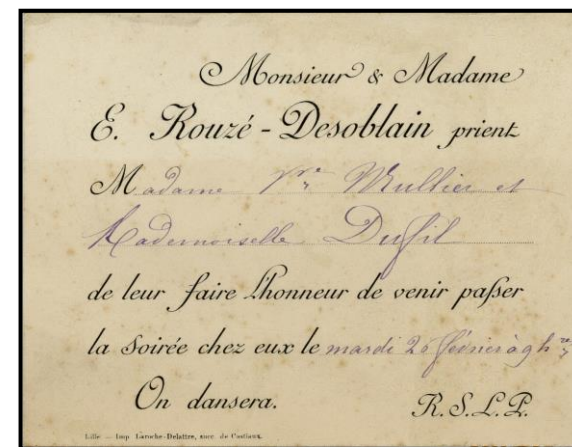 Monsieur & Madame
E. Rouzé - Desoblain prient
Madame Vve Mullier et
Mademoiselle Dufil
de leur faire l'honneur de venir paſser
la Soirée chez eux le mardi 26 février à 9 h res
On dansera. R.S.L.P.
Lille — Imp. Laroche-Delattre, succ. de Castiaux.